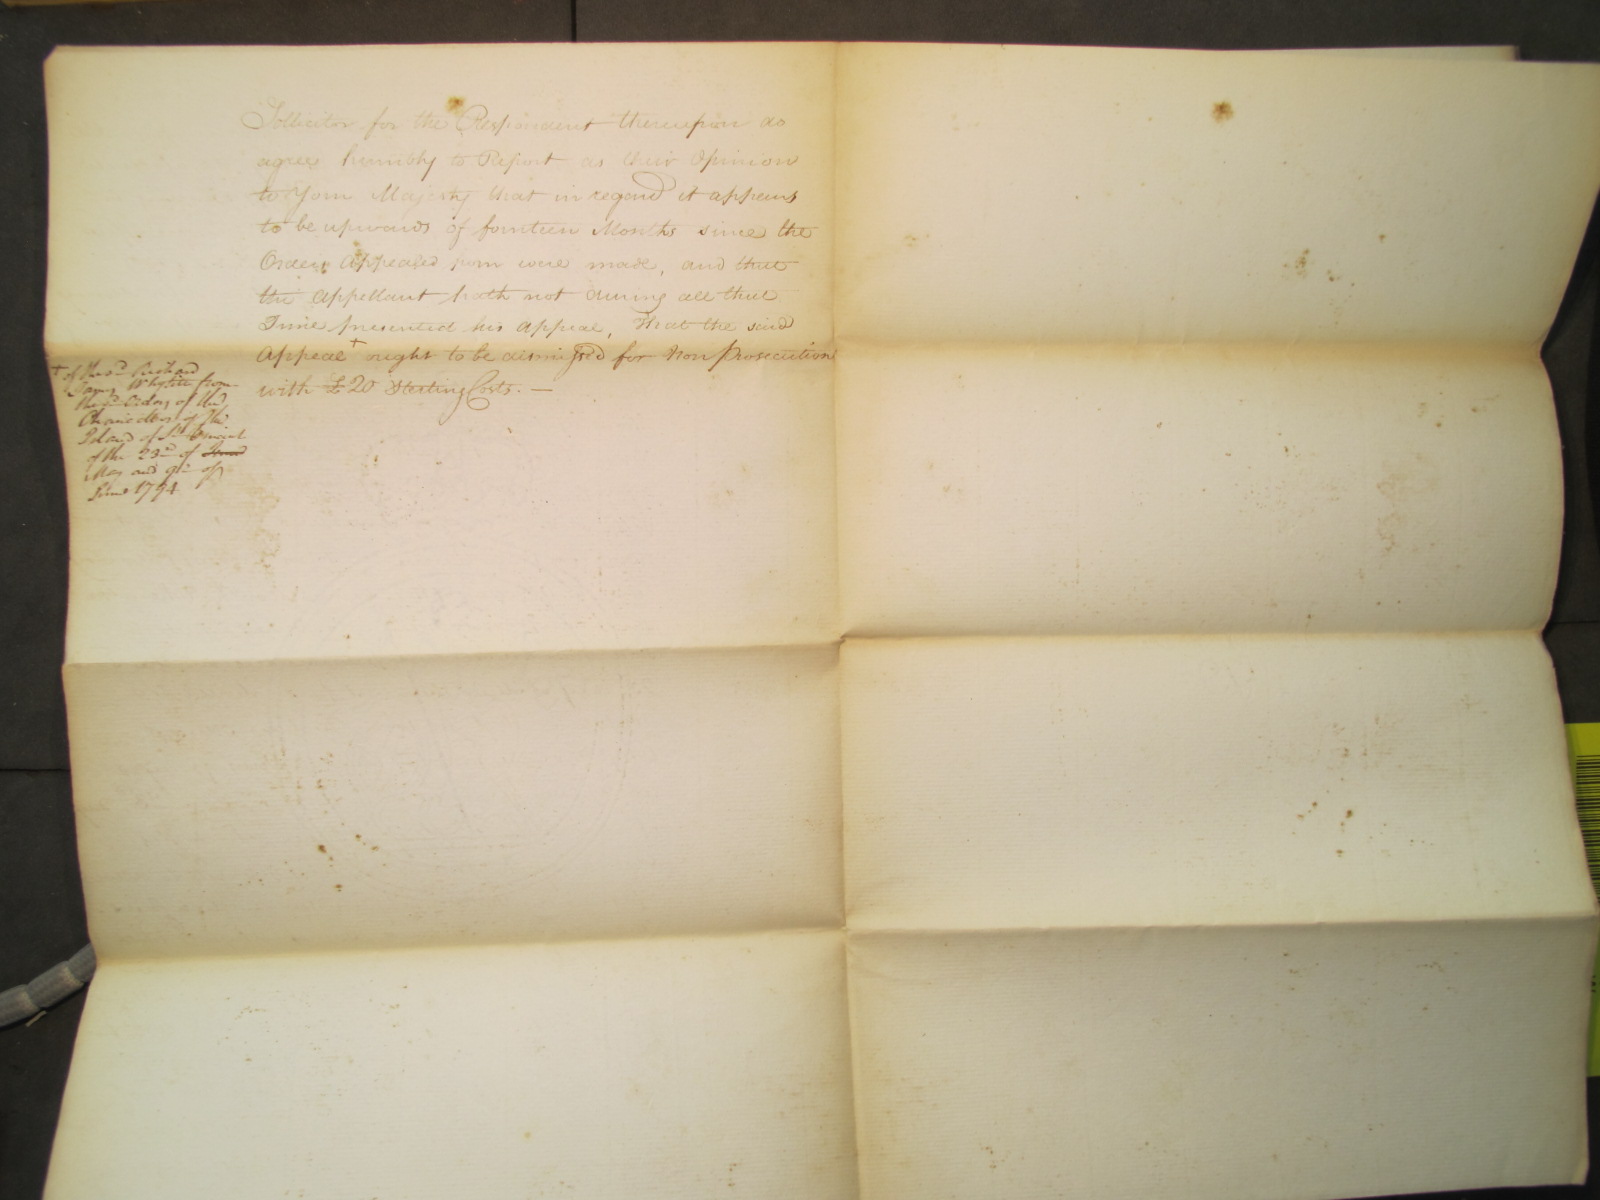 Sollicitor for the Respondent thereupon do
agree humbly to Report as their Opinion
to Your Majesty that in regard it appears
to be upwards of fourteen Months since the
Orders Appealed from were made, and that
the Appellant hath not during all that
Time presented his Appeal, That the said
Appeal + ought to be dismissed for Non Prosecution
with £20 Sterling Costs. —
+ of the sd. Richard
James Whytell from
the sd. Orders of the
Chancellor of the
Island of St. Vincent
of the 23rd of June
May and 9th of
June 1794